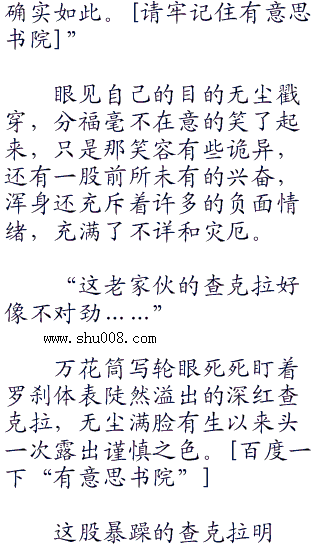 确实如此。[请牢记住有意思
书院]”
眼见自己的目的无尘戳
穿，分福毫不在意的笑了起
来，只是那笑容有些诡异，
还有一股前所未有的兴奋，
浑身还充斥着许多的负面情
绪，充满了不详和灾厄。
“这老家伙的查克拉好
像不对劲……”
www.shu008.com
万花筒写轮眼死死盯着
罗刹体表陡然溢出的深红查
克拉，无尘满脸有生以来头
一次露出谨慎之色。[百度一
下“有意思书院”]
这股暴躁的查克拉明